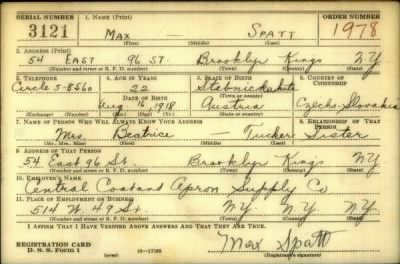 SERIAL NUMBER 1. NAME (Print) ORDER NUMBER
3121 MAX — SPATT 1978
(First) (Middle) (Last)
2. ADDRESS (Print)
54 EAST 96 ST. Brooklyn Kings N.Y.
(Number and street or R. F. D. number) (Town) (County) (State)
3. TELEPHONE 4. AGE IN YEARS 5. PLACE OF BIRTH 6. COUNTRY OF CITIZENSHIP
Circle 5-8560 22
DATE OF BIRTH (Town or county)
Aug 16 1918 Austria Czecho Slovakia
(Exchange) (Number) (Mo.) (Day) (Yr.) (State or country)
7. NAME OF PERSON WHO WILL ALWAYS KNOW YOUR ADDRESS 8. RELATIONSHIP OF THAT PERSON
Mrs. Beatrice — Tucker Sister
(Mr., Mrs., Miss) (First) (Middle) (Last)
9. ADDRESS OF THAT PERSON
54 East 96 St. Brooklyn Kings N.Y.
(Number and street or R. F. D. number) (Town) (County) (State)
10. EMPLOYER'S NAME
Central Coatant Apron Supply Co
11. PLACE OF EMPLOYMENT OR BUSINESS
514 W 49 St. N.Y. N.Y. N.Y.
(Number and street or R. F. D. number) (Town) (County) (State)
I AFFIRM THAT I HAVE VERIFIED ABOVE ANSWERS AND THAT THEY ARE TRUE.
REGISTRATION CARD
D. S. S. Form 1 Max Spatt
(Registrant's signature)